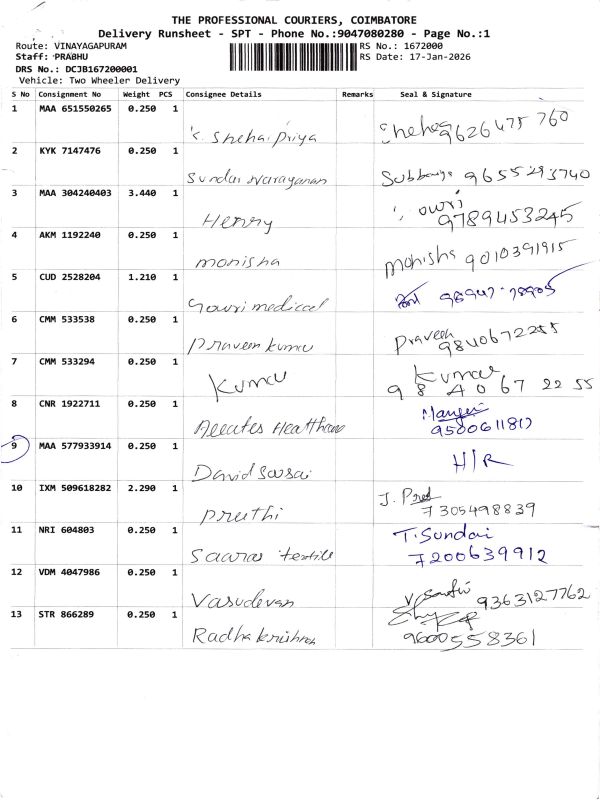 THE PROFESSIONAL COURIERS, COIMBATORE
Delivery Runsheet - SPT - Phone No.:9047080280 - Page No.:1
Route: VINAYAGAPURAM RS No.: 1672000
Staff: PRABHU RS Date: 17-Jan-2026
DRS No.: DCJB167200001
Vehicle: Two Wheeler Delivery
S No Consignment No Weight PCS Consignee Details Remarks Seal & Signature
1 MAA 651550265 0.250 1
K. Shehai Priya Sheha 9626475760
2 KYK 7147476 0.250 1
Sundar Narayanan 9655293740
3 MAA 304240403 3.440 1
Henry 9789453245
4 AKM 1192240 0.250 1
monisha monisha 9010391915
5 CUD 2528204 1.210 1
Gowri medical 98947-78905
6 CMM 533538 0.250 1
Praveen kumar Praveen 9840672255
7 CMM 533294 0.250 1
Kumar Kumar 9840672255
8 CNR 1922711 0.250 1
Healthcare 9500611817
9 MAA 577933914 0.250 1
David H/R
10 IXM 509618282 2.290 1
Preethi J. 7305498839
11 NRI 604803 0.250 1
textile T.Sundar 7200639912
12 VDM 4047986 0.250 1
Vasudevan 9363127762
13 STR 866289 0.250 1
Radha krishnan 9600558361